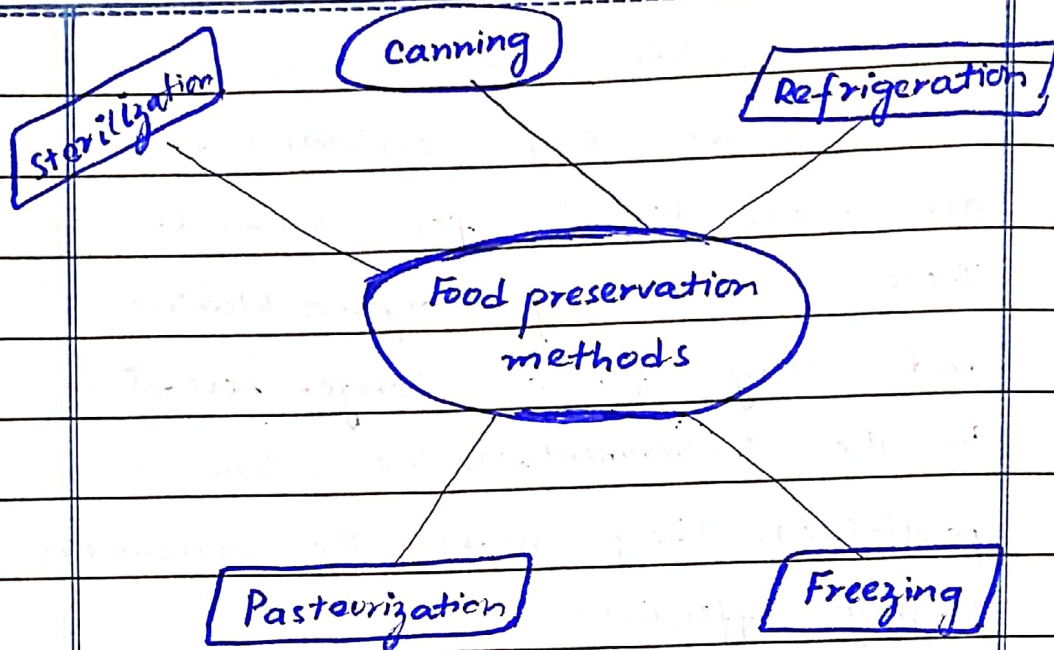 Canning
Sterilization
Refrigeration
Food preservation
methods
Pasteurization
Freezing